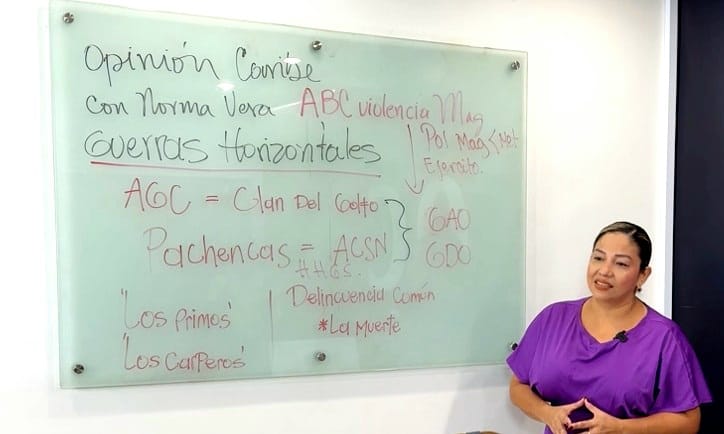 Opinión Caribe
con Norma Vera
ABC violencia Mag
Guerras Horizontales
Pol Mag < Met
Ejercito.
AGC = Clan Del Golfo
Pachencas = ACSN
HHGS.
GAO
GDO
'Los Primos'
'Los Carperos'
Delincuencia Común
*La Muerte